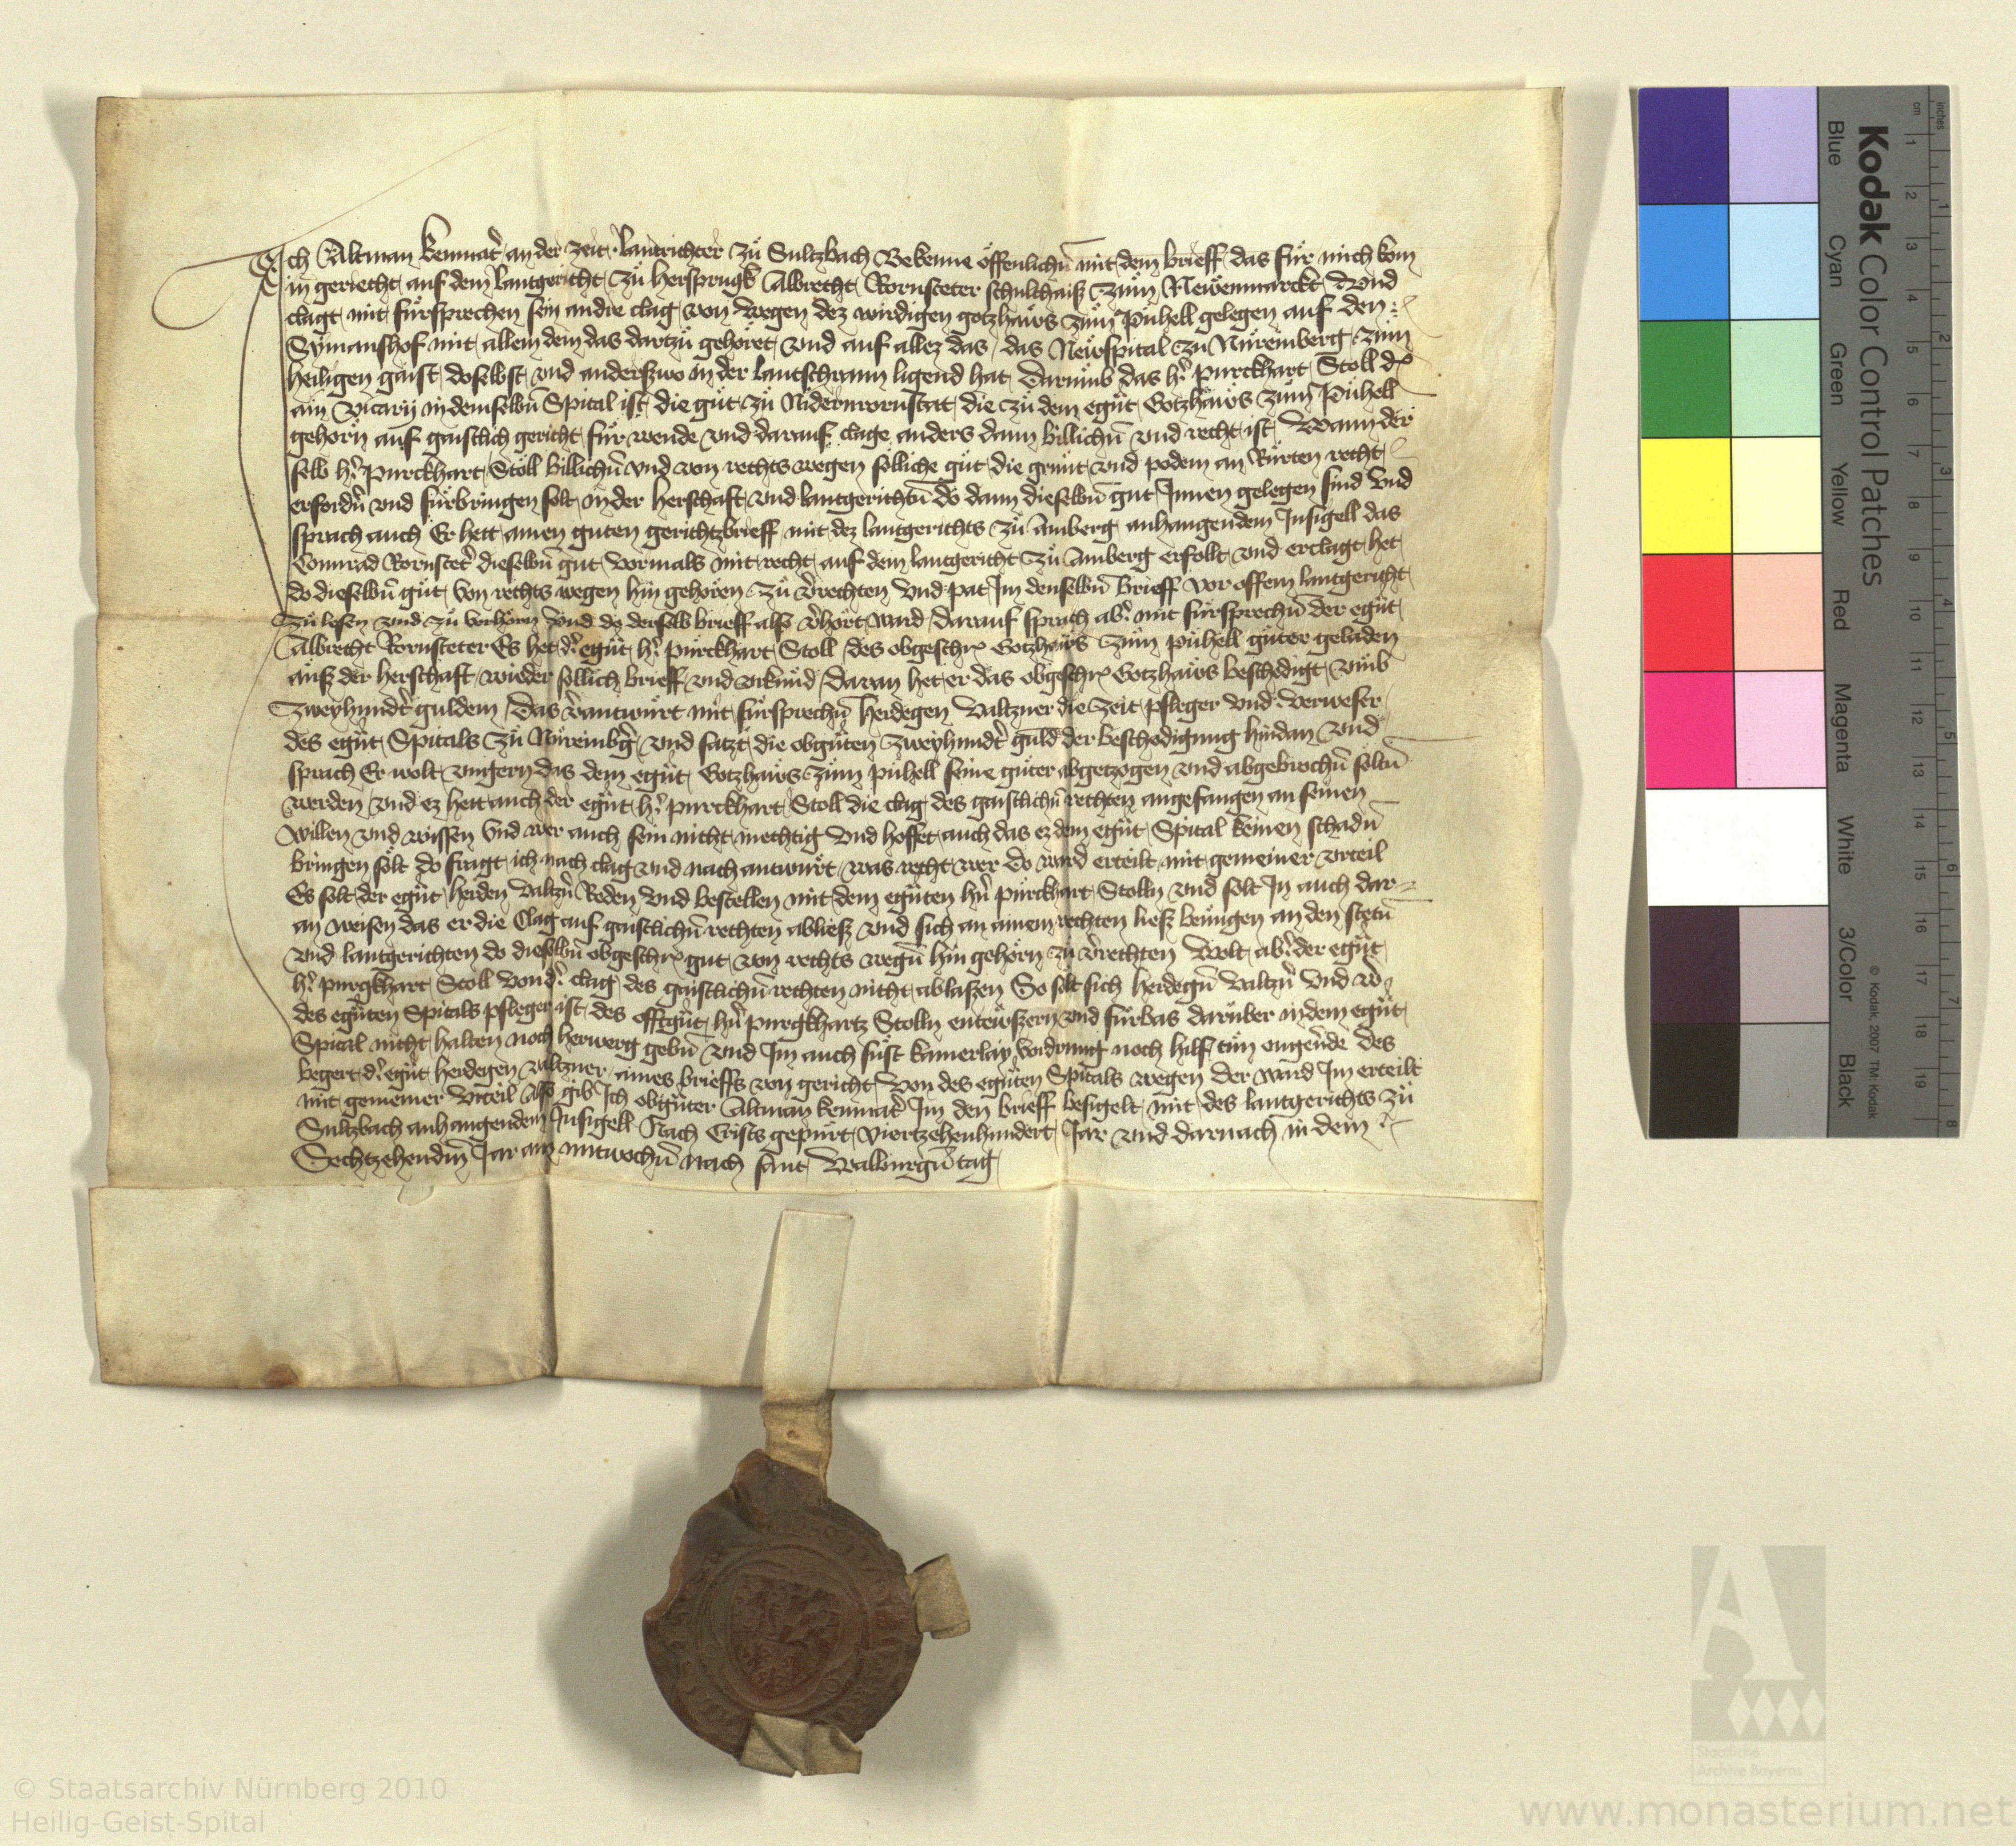 Ich Altman kemnat̾ an der zeit lantrichter zů Sultzbach Bekenne offenlichn̄ mit dem brieff das fúr mich kom
in geriecht auf dem lantgericht zů herspruck Albrecht Rornsteter schulthaiß zům Newenmarckt Vnd
clagt mit fúrsprechen sein andre clag von wegen dez wirdigen gotzhaws zům Púhell gelegen auf den
Symanshof mit allem dem das dartzů gehöret vnd auf allez das das Newspital zu Nuremberg zům
heiligen gaist doselbst vnd anderswo in der lantschrann ligend hat Darumb das h̾ purckhart Stoll d̾
ain vicarij in demselbn̄ Spital ist die gůt zů Nidernrornstat die zů dem egn̄t Gotzhaws zům Púhell
gehorn auf gaistlich gericht fúr wende vnd darauf clage anders dann billichn̄ vnd recht ist Wann der
selb h̾ Purckhart Stoll billichn̄ vnd von rechts wegen sölliche gůt die grunt vnd podem an Rúrten recht
erfordn̄ vnd fúrbringen solt in der herschaft vnd lantgerichtn̄ do dann dieselbn̄ gut Innen gelegen sind Vnd
sprach auch Er hett ainen guten gerichtzbrieff mit dez lantgerichts zů Amberg anhangendem Insigell das
Connrad Rornstet̾ dieselbn̄ gut vormals mit recht auf dem lantgericht zů Amberg erfollt vnd erclagt het
do dieselbn̄ gůt von rechts wegen hin gehören zů v̾rechten Vnd pat Im denselbn̄ Brieff vor offem lantgericht
zů lesen vnd zů verhörn Vnd do derselb brieff also v̾hört ward darauf sprach ab̾ mit fúrsprechn̄ der egn̄t
Albrecht Rornsteter Es het d̾ egn̄t h̾ purckhart Stoll des obgeschr̾ Gotzhaws zům púhell gůter geladen
auß der herschaft wieder söllich brieff vnd vrkund daran het er das obgeschr̾ Gotzhaws beschedigt vmb
zweyhundt̾ guldein Das v̾antwúrt mit fúrsprechn̄ herdegen Valtzner die zeit pfleger vnd verweser
des egn̄t Spitals zů Núremb̾g vnd satzt die obgn̄ten zweyhundt̾ guld̄ der beschedigung hindan vnd
sprach Er wolt vngern das dem egn̄t Gotzhaws zům púhell seine gůter abgetzogen vnd abgebrochn̄ soltn̄
werden vnd ez hett auch der egn̄t h̾ purckhart Stoll die clag des gaistlichn̄ rechten angefangen an seinen
willen vnd wissen Vnd wer auch sein nicht mechtig Vnd hoffet auch das ez dem egn̄t Spital keinen schadn̄
bringen sölt do fragt ich nach clag vnd nach antwúrt was recht wer do ward erteilt mit gemeiner vrteil
Es solt der egn̄t herden Valtzn̾ Reden vnd bestellen mit dem egn̄ten hn̾ púrckhart Stolln vnd solt In auch dar-
an weisen das er die Clag auf gaistlichn̄ rechten abließ vnd sich an ainem rechten ließ benúgen an den stetn̄
vnd lantgerichten do dieselbn̄ obgeschr̾ gut von rechts wegn̄ hin gehörn zů v̾rechten Wolt ab̾ der egn̄t
h̾ purgkhart Stoll von d̾ clag des gaistlichn̄ rechten nicht ablaßen So sölt sich herdegn̄ Valtzn̾ Vnd w̾
des egn̄ten Spitals pfleger ist des offtgn̄t hn̾ purgkhartz Stolln entewßern vnd fúrbas darúber in dem egn̄t
Spital nicht halten noch herwerg gebn̄ vnd Im auch súst kainerlay vordrung noch hilf tun ongeu̾de des
begert d̾ egn̄t herdegen Valtzner aines brieffs von gericht Von des egn̄ten Spitals wegen Der ward Im erteilt
mit gemeiner Vrteil Also gib Ich obgn̄ter Altman kemnat̾ Im den brieff besigelt mit des lantgerichts zů
Sultzbach anhangendem Insigell Nach Crists gepúrt viertzehenhundert Jar vnd darnach in dem
Sechtzehendn̄ Jar am mitwochn̄ nach sant Walburgn̄ tag
Kodak Color Control Patches
Blue Cyan Green Yellow Red Magenta White 3/Color Black
© Kodak, 2007 TM: Kodak
cm 1 2 3 4 5 6 7 8 9 10 11 12 13 14 15 16 17 18 19
inches 1 2 3 4 5 6 7 8
© Staatsarchiv Nürnberg 2010
Heilig-Geist-Spital
Staatliche
Archive Bayerns
www.monasterium.net